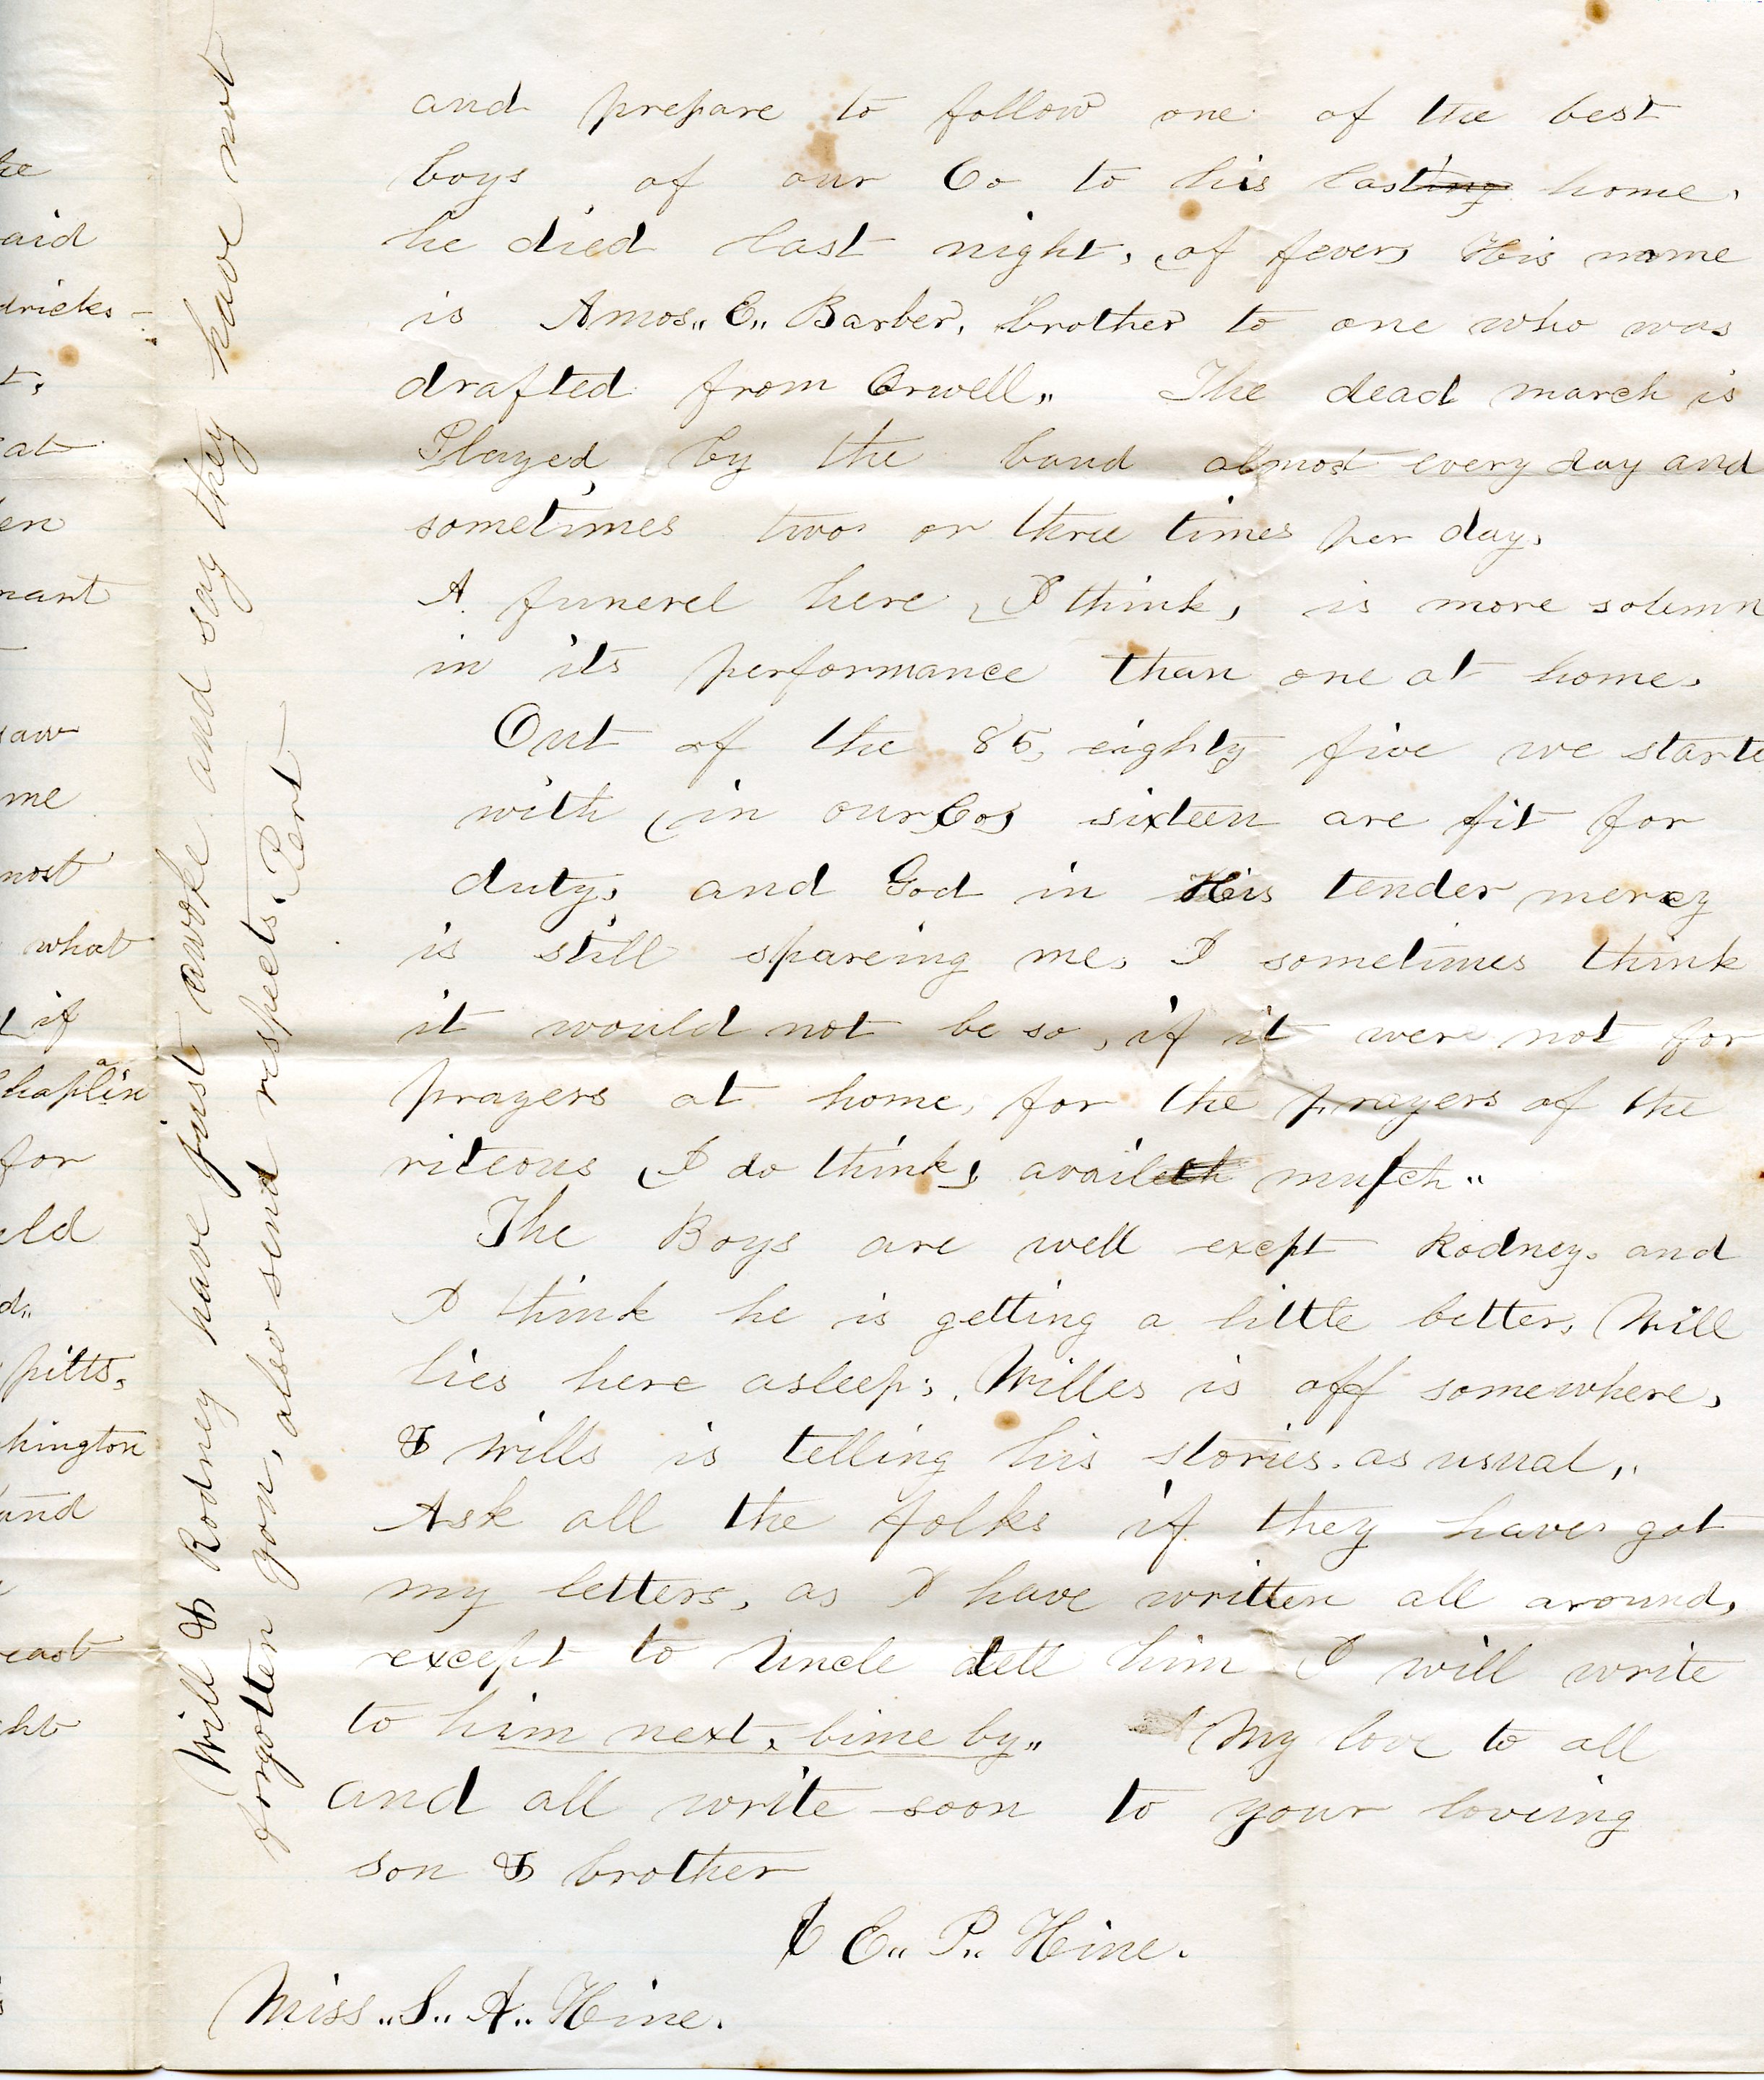 and prepare to follow one of the best
boys of our Co to his lasting home,
he died last night, (of fever) His name
is Amos,, E,, Barber, brother to one who was
drafted from Orwell,, The dead march is
Played, by the band almost every day and
sometimes two or three times per day,
A funerel here (I think, is more solemn
in its performance than one at home,
Out of the 85, eighty five we starte
with (in our Co) sixteen are fit for
duty, and God in His tender mercy
is still spareing me, I sometimes think
it would not be so, if it were not for
prayers at home, for the prayers of the
riteous (I do think) availeth mutch,,
The Boys are well exept Rodney, and
I think he is getting a little better, Will
lies here asleep, Willes is off somewhere,
& Wills is telling his stories, as usual,,
Ask all the folks if they have got
my letters, as I have written all around,
except to Uncle tell him I will write
to him next, bime by,, My love to all
and all write soon to your loveing
son & brother
E,, P,, Hine.
Miss,, S,, A,, Hine.
Will & Rodney have just awoke and say they have not
forgotten you, also send respects. Pert
he
aid
dricks-
t,
at
en
nant
saw
me
most
what
if
haplain
for
eld
d,,
pitts,
hington
and
east
ht